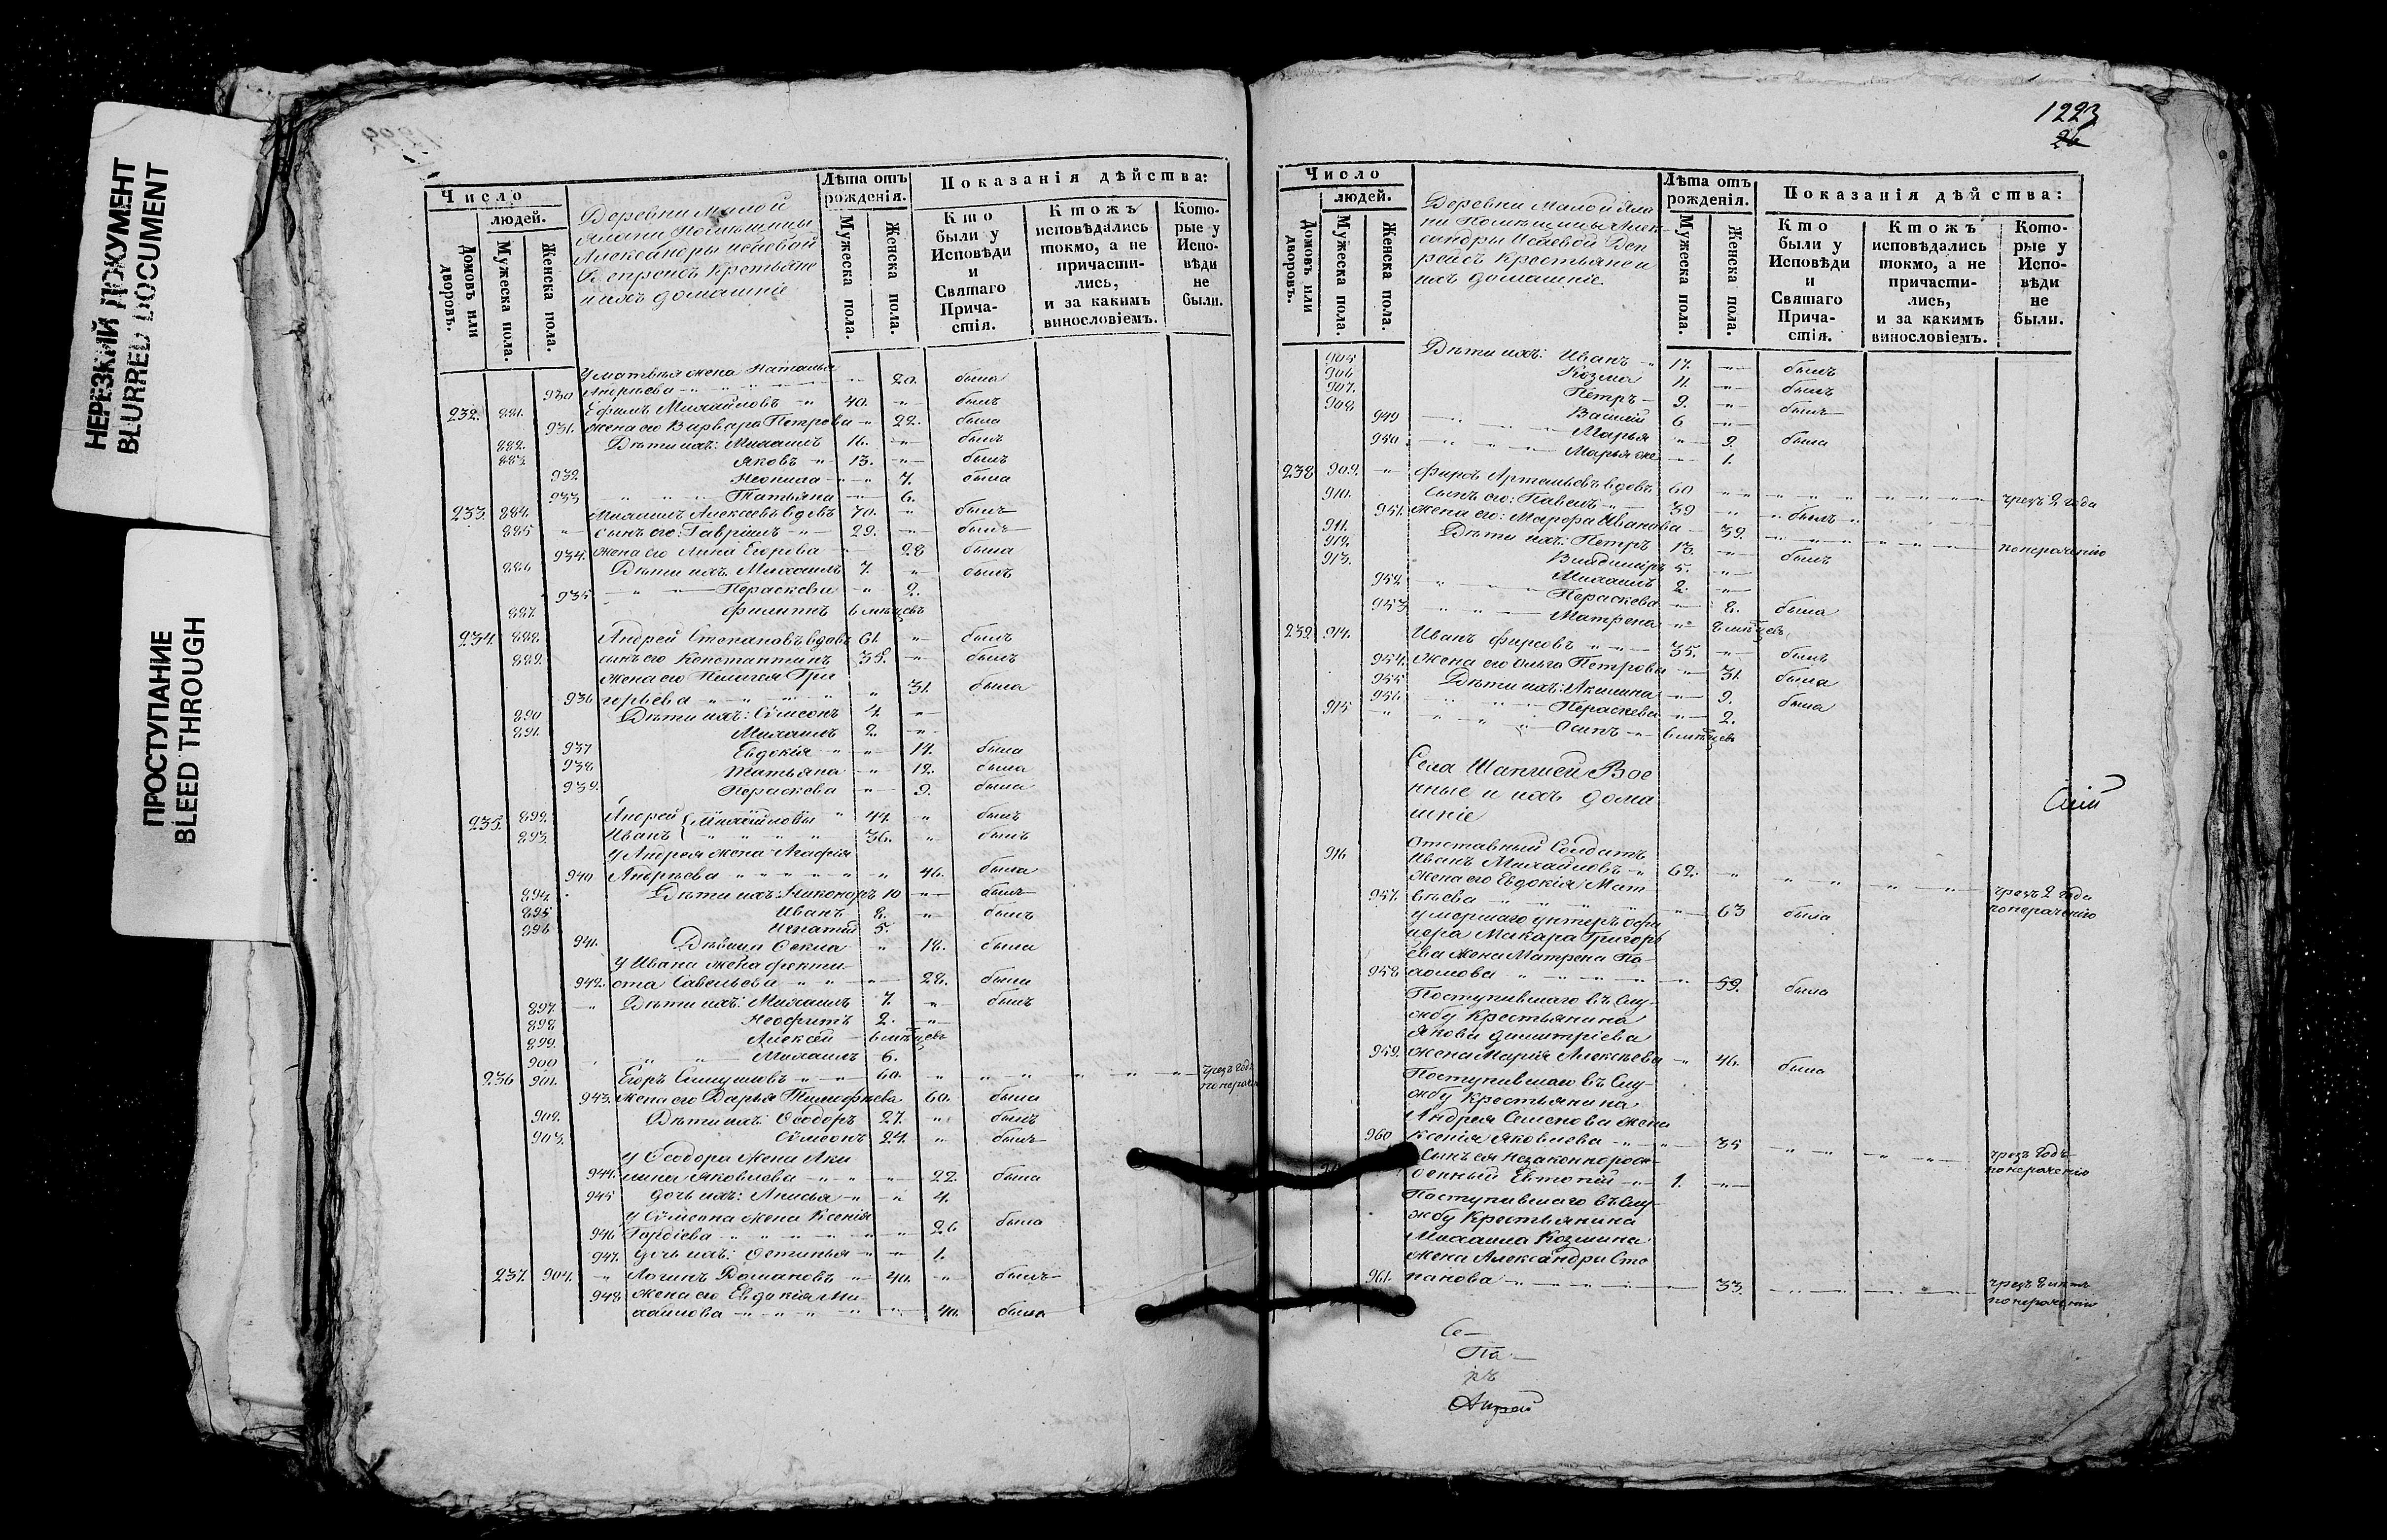 НЕРЕЗКИЙ ДОКУМЕНТ
BLURRED DOCUMENT
ПРОСТУПАНИЕ
BLEED THROUGH
Число
людей.
Домовъ или дворовъ.
Мужеска пола.
Женска пола.
Деревни Малой
Помѣщицы
Александры Исаевой
Крестьяне
и ихъ домашніе
Лѣта отъ рожденія.
Мужеска пола.
Женска пола.
Показанія дѣйства:
Кто были у Исповѣди и Святаго Причастія.
Ктожъ исповѣдались токмо, а не причастились, и за какимъ винословіемъ.
Которые у Исповѣди не были.
У Матвѣя жена Наталья
930 Андреева 20. была
232. 881. Ефимъ Михайловъ 40. былъ
931. Жена его Варвара Петрова 22. была
882. Дѣти ихъ: Михаилъ 16. былъ
883 Яковъ 13. былъ
932 Неонила 7. была
933 Татьяна 6.
233. 884. Михаилъ Алексѣевъ вдовъ 70. былъ
885 сынъ его: Гавріилъ 29. былъ
934. Жена его Анна Егорова 28 была
886 Дѣти ихъ Михаилъ 7. былъ
935 Пераскева 2.
887. Филиппъ 6 мѣсяцевъ
234. 888. Андрей Степановъ вдовъ 61. былъ
889. сынъ его Константинъ 35. былъ
Жена его Пелагея Гри
936 горьева 31. была
890 Дѣти ихъ: Сѵмеонъ 4.
891. Михаилъ 2.
937 Евдокія 14. была
938 Татьяна 12. была
939. Пераскева 9. была
235. 892. Андрей Михайловы 44. былъ
893. Иванъ 36. былъ
У Андрея жена Агафія
940 Андреева 46. была
894. Дѣти ихъ: Никоноръ 10 былъ
895 Иванъ 8. былъ
896 Игнатій 5.
941. Дѣвица Ѳекла 18. была
У Ивана жена Фекти-
942. ста Савельева 28. была
897. Дѣти ихъ: Михаилъ 7. былъ
898 Неофитъ 2.
899. Алексѣй 6 мѣсяцевъ
900 Михаилъ 6.
236 901. Егоръ 60. чрезъ годъ
943. Жена его Дарья Тимофѣева 60. была
902. Дѣти ихъ: Ѳеодоръ 27. былъ
903. Сѵмеонъ 24. былъ
У Ѳеодора жена Аки
944. лина Яковлева 22. была
945 дочь ихъ: Анисья 4.
У Сѵмеона жена Ксенія
946 Гордіева 26 была
947. дочь ихъ: Устинья 1.
237. 904. Логинъ Романовъ 40. былъ
948 Жена его Евдокія Ми-
хайлова 40. была
1223
26
Число
людей.
Домовъ или дворовъ.
Мужеска пола.
Женска пола.
Деревни Малой
Помѣщицы Алек-
сандры Исаевой
Крестьяне и
ихъ домашніе.
Лѣта отъ рожденія.
Мужеска пола.
Женска пола.
Показанія дѣйства:
Кто были у Исповѣди и Святаго Причастія.
Ктожъ исповѣдались токмо, а не причастились, и за какимъ винословіемъ.
Которые у Исповѣди не были.
905 Дѣти ихъ: Иванъ 17. былъ
906 Козма 11. былъ
907. Петръ 9. былъ
908 Василій 6
949 Марья 9. была
950 Марья же 1.
238 909. Фирсъ Артемьевъ вдовъ 60 чрезъ 2 года
910. Сынъ его: Павелъ 39 былъ
951. Жена его: Марфа Иванова 39. по нераченію
911. Дѣти ихъ: Петръ 13. былъ
912. Владиміръ 5.
913. Михаилъ 2.
952 Пераскева 8. была
953 Матрена 8 мѣсяцевъ
239. 914. Иванъ Фирсовъ 35. былъ
954. Жена его Ольга Петрова 31. была
955 Дѣти ихъ: Акилина 9. была
956 Пераскева 2.
915 Осипъ 6 мѣсяцевъ
Села Шапчей Вое
нные и ихъ дома
шніе
916 Отставный Солдатъ
Иванъ Михайловъ 62. чрезъ 2 года
Жена его Евдокія Мат
957. вѣева 63 была по нераченію
умершаго унтеръ офи
цера Макара Григорь
ева жена Матрена Па-
958 хомова 59. была
Поступившаго въ Слу-
жбу Крестьянина
Якова Димитріева
959. жена Марія Алексѣева 46. была
Поступившаго въ Слу-
жбу Крестьянина
Андрея Семенова жена
960 Ксенія Яковлева 35 чрезъ годъ
Сынъ ея незаконнорож- по нераченію
денный 1.
Поступившаго въ Слу-
жбу Крестьянина
Михаила Козмина
жена Александра Сте
961. панова 33. чрезъ
по нераченію
Се-
Па-
ръ